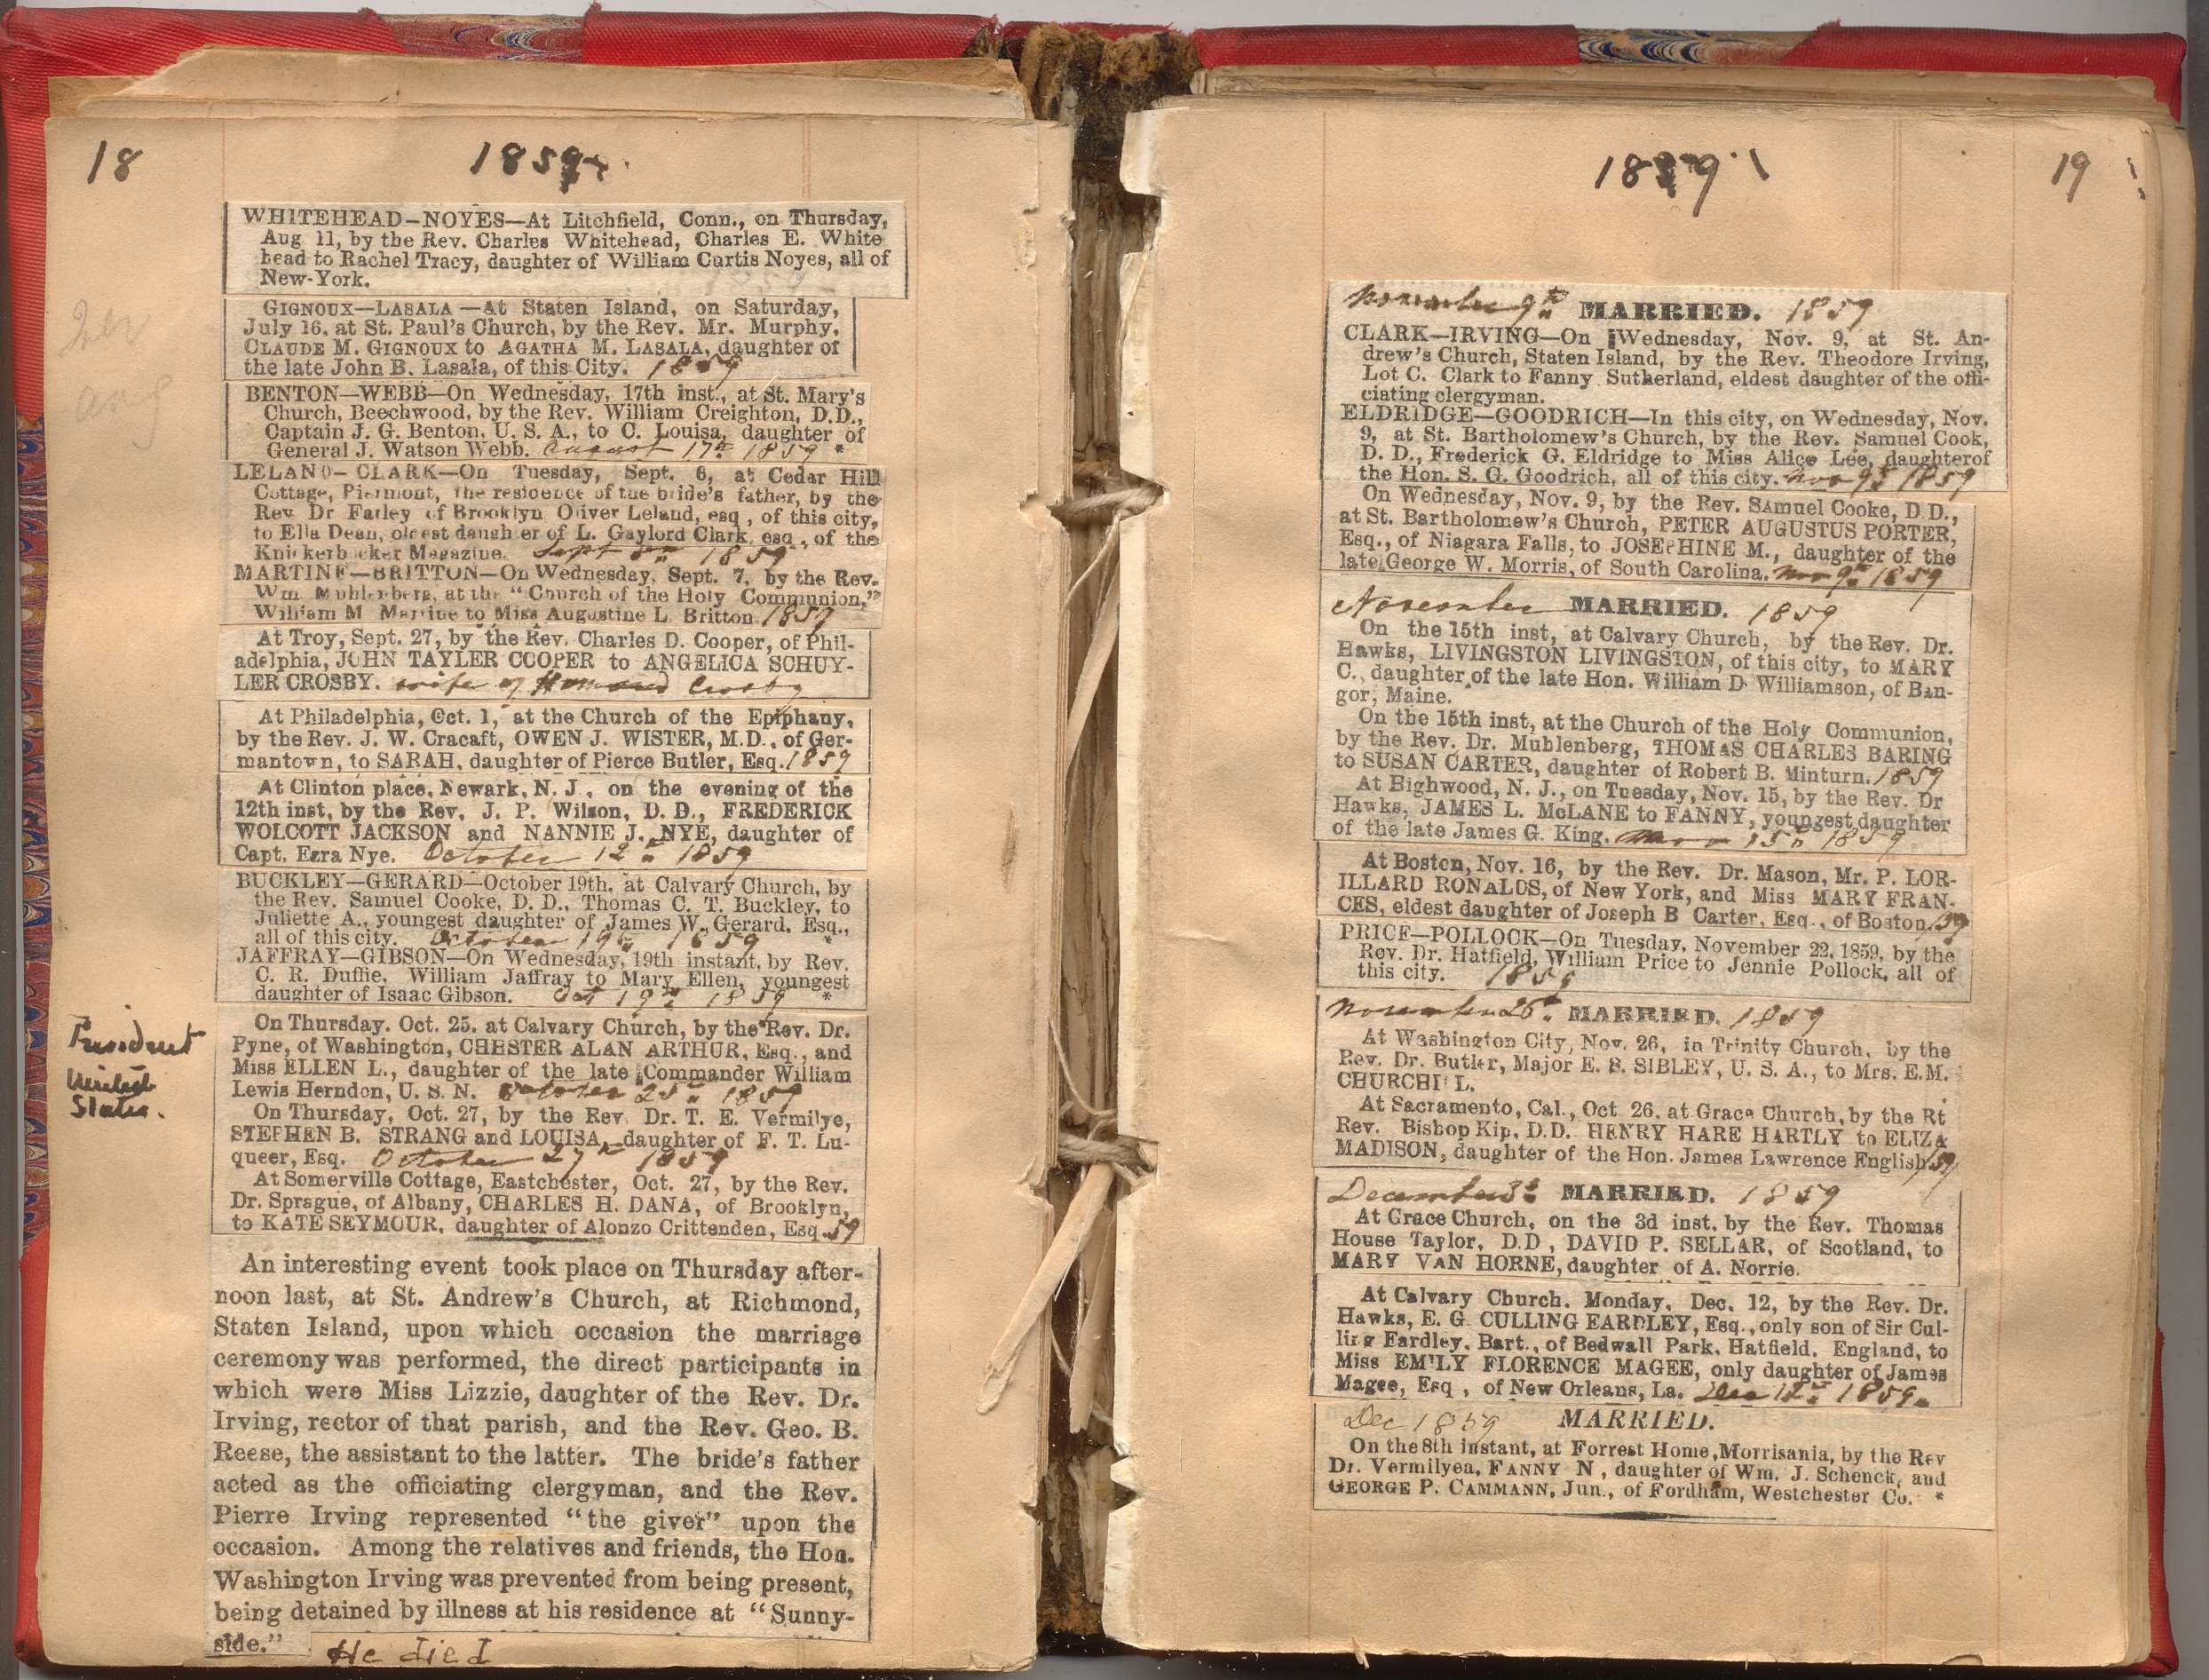 18
1859
WHITEHEAD–NOYES—At Litchfield, Conn., on Thursday,
Aug 11, by the Rev. Charles Whitehead, Charles E. White
head to Rachel Tracy, daughter of William Curtis Noyes, all of
New-York.
GIGNOUX—LASALA—At Staten Island, on Saturday,
July 16, at St. Paul's Church, by the Rev. Mr. Murphy,
CLAUDE M. GIGNOUX to AGATHA M. LASALA, daughter of
the late John B. Lasala, of this City. 1859
BENTON—WEBB—On Wednesday, 17th inst., at St. Mary's
Church, Beechwood, by the Rev. William Creighton, D.D.,
Captain J. G. Benton, U. S. A., to C. Louisa, daughter of
General J. Watson Webb. August 17th 1859 *
LELAND–CLARK—On Tuesday, Sept. 6, at Cedar Hill
Cottage, Piermont, the residence of the bride's father, by the
Rev. Dr Farley of Brooklyn Oliver Leland, esq, of this city,
to Ella Dean, oldest daughter of L. Gaylord Clark, esq., of the
Knickerbocker Magazine. Sept 1859
MARTINE—BRITTON—On Wednesday, Sept. 7, by the Rev.
Wm. Muhlenberg, at the "Church of the Holy Communion,"
William M Martine to Miss Augustine L Britton 1859
At Troy, Sept. 27, by the Rev. Charles D. Cooper, of Phil-
adelphia, JOHN TAYLER COOPER to ANGELICA SCHUY-
LER CROSBY. wife of Howard Crosby
At Philadelphia, Oct. 1, at the Church of the Epiphany,
by the Rev. J. W. Cracaft, OWEN J. WISTER, M.D., of Ger-
mantown, to SARAH, daughter of Pierce Butler, Esq. 1859
At Clinton place, Newark, N. J., on the evening of the
12th inst, by the Rev. J. P. Wilson, D. D., FREDERICK
WOLCOTT JACKSON and NANNIE J. NYE, daughter of
Capt. Ezra Nye. October 12th 1859
BUCKLEY—GERARD—October 19th, at Calvary Church, by
the Rev. Samuel Cooke, D. D., Thomas C. T. Buckley, to
Juliette A., youngest daughter of James W. Gerard, Esq.,
all of this city. October 19th 1859 *
JAFFRAY—GIBSON—On Wednesday, 19th instant, by Rev.
C. R. Duffie, William Jaffray to Mary Ellen, youngest
daughter of Isaac Gibson. Oct 19th 1859 *
President
United
States.
On Thursday, Oct. 25, at Calvary Church, by the Rev. Dr.
Pyne, of Washington, CHESTER ALAN ARTHUR, Esq., and
Miss ELLEN L., daughter of the late Commander William
Lewis Herndon, U. S. N. October 25th 1859
On Thursday, Oct. 27, by the Rev. Dr. T. E. Vermilye,
STEPHEN B. STRANG and LOUISA, daughter of F. T. Lu-
queer, Esq. October 27th 1859
At Somerville Cottage, Eastchester, Oct. 27, by the Rev.
Dr. Sprague, of Albany, CHARLES H. DANA, of Brooklyn,
to KATE SEYMOUR, daughter of Alonzo Crittenden, Esq. 59
An interesting event took place on Thursday after-
noon last, at St. Andrew's Church, at Richmond,
Staten Island, upon which occasion the marriage
ceremony was performed, the direct participants in
which were Miss Lizzie, daughter of the Rev. Dr.
Irving, rector of that parish, and the Rev. Geo. B.
Reese, the assistant to the latter. The bride's father
acted as the officiating clergyman, and the Rev.
Pierre Irving represented "the giver" upon the
occasion. Among the relatives and friends, the Hon.
Washington Irving was prevented from being present,
being detained by illness at his residence at "Sunny-
side." He died
1859.
19
November 9th MARRIED. 1859
CLARK—IRVING—On Wednesday, Nov. 9, at St. An-
drew's Church, Staten Island, by the Rev. Theodore Irving,
Lot C. Clark to Fanny Sutherland, eldest daughter of the offi-
ciating clergyman.
ELDRIDGE—GOODRICH—In this city, on Wednesday, Nov.
9, at St. Bartholomew's Church, by the Rev. Samuel Cook,
D. D., Frederick G. Eldridge to Miss Alice Lee, daughterof
the Hon. S. G. Goodrich, all of this city. Nov 9th 1859
On Wednesday, Nov. 9, by the Rev. Samuel Cooke, D.D.,
at St. Bartholomew's Church, PETER AUGUSTUS PORTER,
Esq., of Niagara Falls, to JOSEPHINE M., daughter of the
late George W. Morris, of South Carolina. Nov 9th 1859
November MARRIED. 1859
On the 15th inst, at Calvary Church, by the Rev. Dr.
Hawks, LIVINGSTON LIVINGSTON, of this city, to MARY
C., daughter of the late Hon. William D. Williamson, of Ban-
gor, Maine.
On the 15th inst, at the Church of the Holy Communion,
by the Rev. Dr. Muhlenberg, THOMAS CHARLES BARING
to SUSAN CARTER, daughter of Robert B. Minturn. 1859
At Highwood, N. J., on Tuesday, Nov. 15, by the Rev. Dr
Hawks, JAMES L. McLANE to FANNY, youngest daughter
of the late James G. King. Nov 15th 1859
At Boston, Nov. 16, by the Rev. Dr. Mason, Mr. P. LOR-
ILLARD RONALDS, of New York, and Miss MARY FRAN-
CES, eldest daughter of Joseph B Carter, Esq., of Boston. 59
PRICE—POLLOCK—On Tuesday, November 22, 1859, by the
Rev. Dr. Hatfield, William Price to Jennie Pollock, all of
this city. 1859
November 26th MARRIED. 1859
At Washington City, Nov. 26, in Trinity Church, by the
Rev. Dr. Butler, Major E. S. SIBLEY, U. S. A., to Mrs. E.M.
CHURCHILL.
At Sacramento, Cal., Oct 26, at Grace Church, by the Rt
Rev. Bishop Kip, D.D. HENRY HARE HARTLY to ELIZA
MADISON, daughter of the Hon. James Lawrence English 59
December 3d MARRIED. 1859
At Grace Church, on the 3d inst. by the Rev. Thomas
House Taylor, D.D, DAVID P. SELLAR, of Scotland, to
MARY VAN HORNE, daughter of A. Norrie.
At Calvary Church, Monday, Dec. 12, by the Rev. Dr.
Hawks, E. G. CULLING EARDLEY, Esq., only son of Sir Cul-
ling Eardley, Bart., of Bedwall Park, Hatfield, England, to
Miss EMILY FLORENCE MAGEE, only daughter of James
Magee, Esq, of New Orleans, La. Dec 12th 1859.
Dec 1859 MARRIED.
On the 8th instant, at Forrest Home, Morrisania, by the Rev
Dr. Vermilyea, FANNY N, daughter of Wm. J. Schenck, and
GEORGE P. CAMMANN, Jun., of Fordham, Westchester Co. *